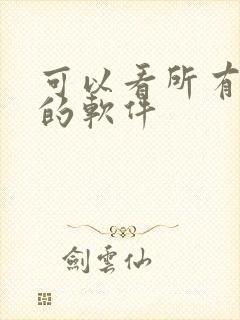 可以看所有
的軟件
劍雲仙